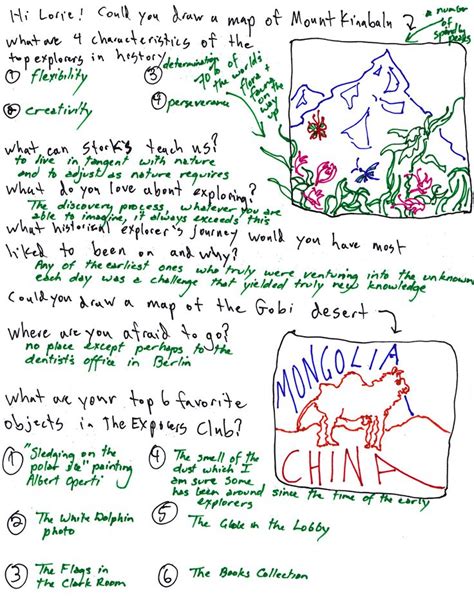 Hi Lorie! Could you draw a map of Mount Kinabalu
a number of spandy peaks
what are 4 characteristics of the
top explorers in history
① flexibility
③ determination
② creativity
④ perseverance
70% of the world's flora + fauna on the way up
what can storks teach us?
to live in tangent with nature
and to adjust as nature requires
what do you love about exploring?
The discovery process, whatever you are
able to imagine, it always exceeds this
what historical explorer's journey would you have most
liked to been on and why?
Any of the earliest ones who truly were venturing into the unknown
each day was a challenge that yielded truly new knowledge
Could you draw a map of the Gobi desert
where are you afraid to go?
no place except perhaps to the
dentist's office in Berlin
MONGOLIA
CHINA
what are your top 6 favorite
objects in The Exporers Club?
① "Sledging on the
polar ice" painting
Albert Operti
④ The smell of the
dust which I
am sure some
has been around
since the time of the early
explorers
② The White Dolphin
photo
⑤ The Globe in the Lobby
③ The Flags in
the Clark Room
⑥ The Books Collection